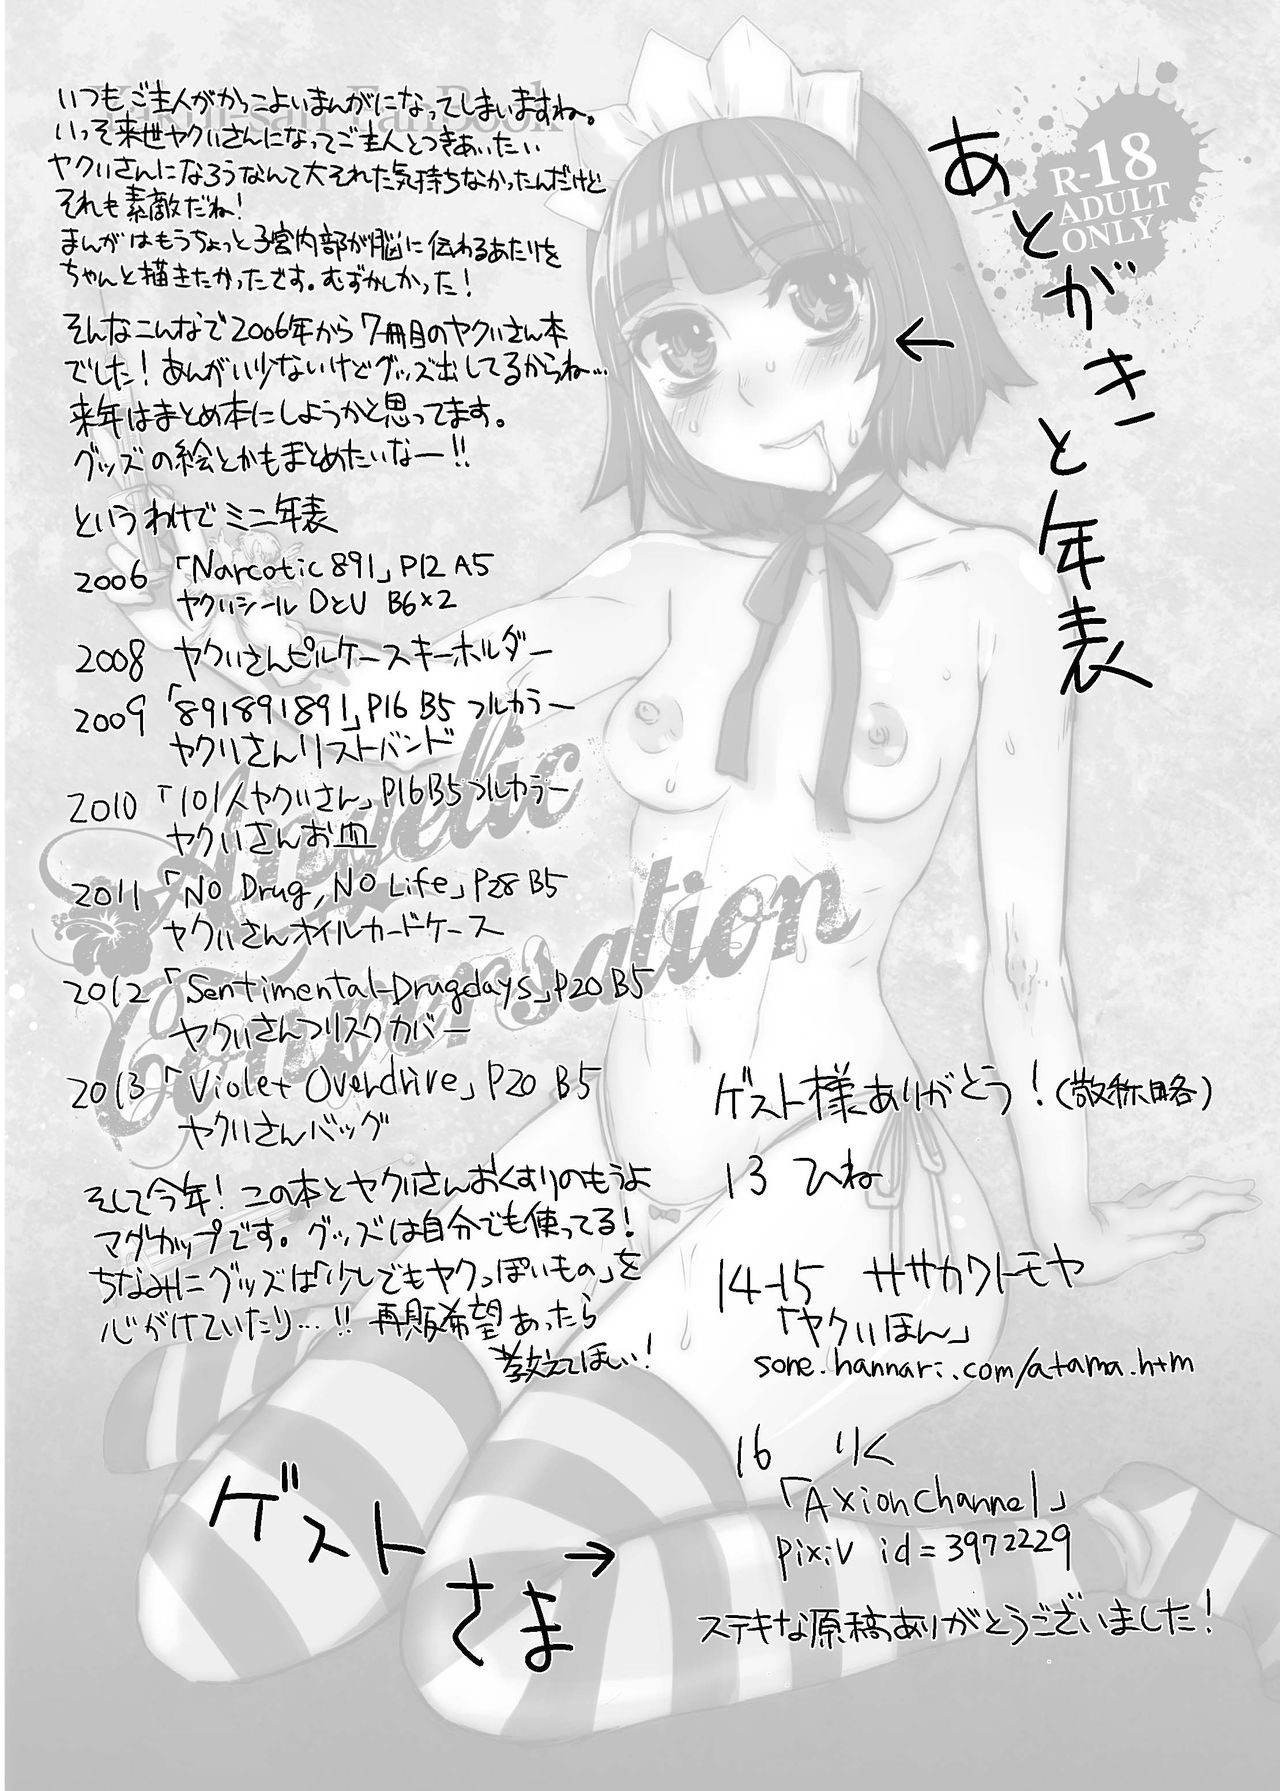 あとがきと年表
R-18
ADULT
ONLY
いつもご主人がかっこよいまんがになってしまいますね。
いっそ来世ヤクいさんになってご主人とつきあいたい
ヤクいさんになろうなんて大それた気持ちなかったんだけど
それも素敵だね!
まんがはもうちょっと子宮内部が脳に伝わるあたりを
ちゃんと描きたかったです。むずかしかった!
そんなこんなで2006年から7冊目のヤクいさん本
でした!あんがい少ないけどグッズ出してるからね…
来年はまとめ本にしようかと思ってます。
グッズの絵とかもまとめたいなー!!
というわけでミニ年表
2006 「Narcotic 891」P12 A5
ヤクいシール DとU B6×2
2008 ヤクいさんピルケースキーホルダー
2009 「891891891」P16 B5 フルカラー
ヤクいさんリストバンド
2010 「101人ヤクいさん」P16B5フルカラー
ヤクいさんお皿
2011 「No Drug, No Life」P28 B5
ヤクいさんオイルカードケース
2012 「Sentimental-Drugdays」P20 B5
ヤクいさんフリスクカバー
2013 「Violet Overdrive」P20 B5
ヤクいさんバッグ
そして今年!この本とヤクいさんおくすりのもうよ
マグカップです。グッズは自分でも使ってる!
ちなみにグッズは「少しでもヤクっぽいもの」を
心がけていたり…!! 再販希望あったら
教えてほしい!
Angelic
Conversation
ゲストさま→
ゲスト様ありがとう!(敬称略)
13 ひね
14-15 ササカワトモヤ
「ヤクいほん」
sone.hannari.com/atama.htm
16 りく
「AxionChannel」
pixiv id=3972229
ステキな原稿ありがとうございました!